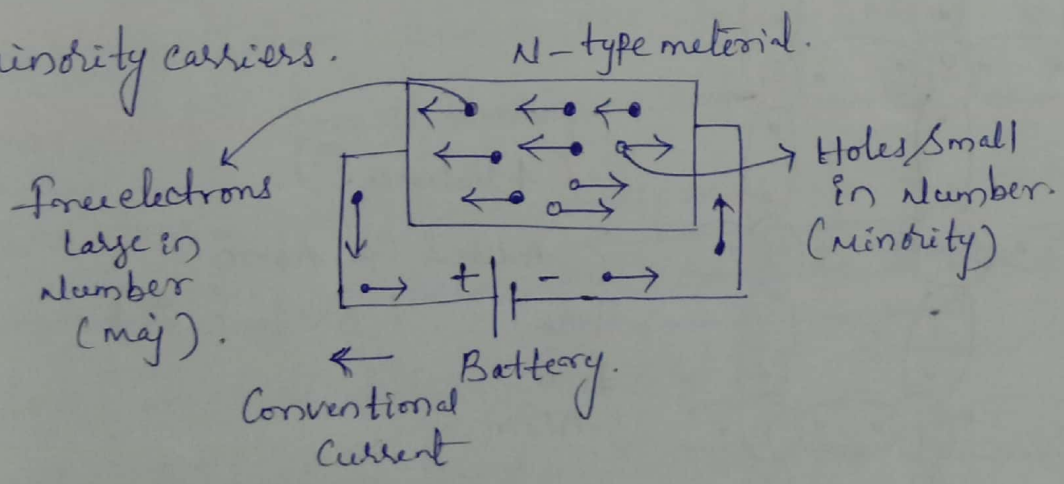 inority carriers.
N-type meterial.
Free electrons
Large in
Number
(maj).
Holes/Small
in Number.
(Minority)
+ -
Battery.
Conventional
Current